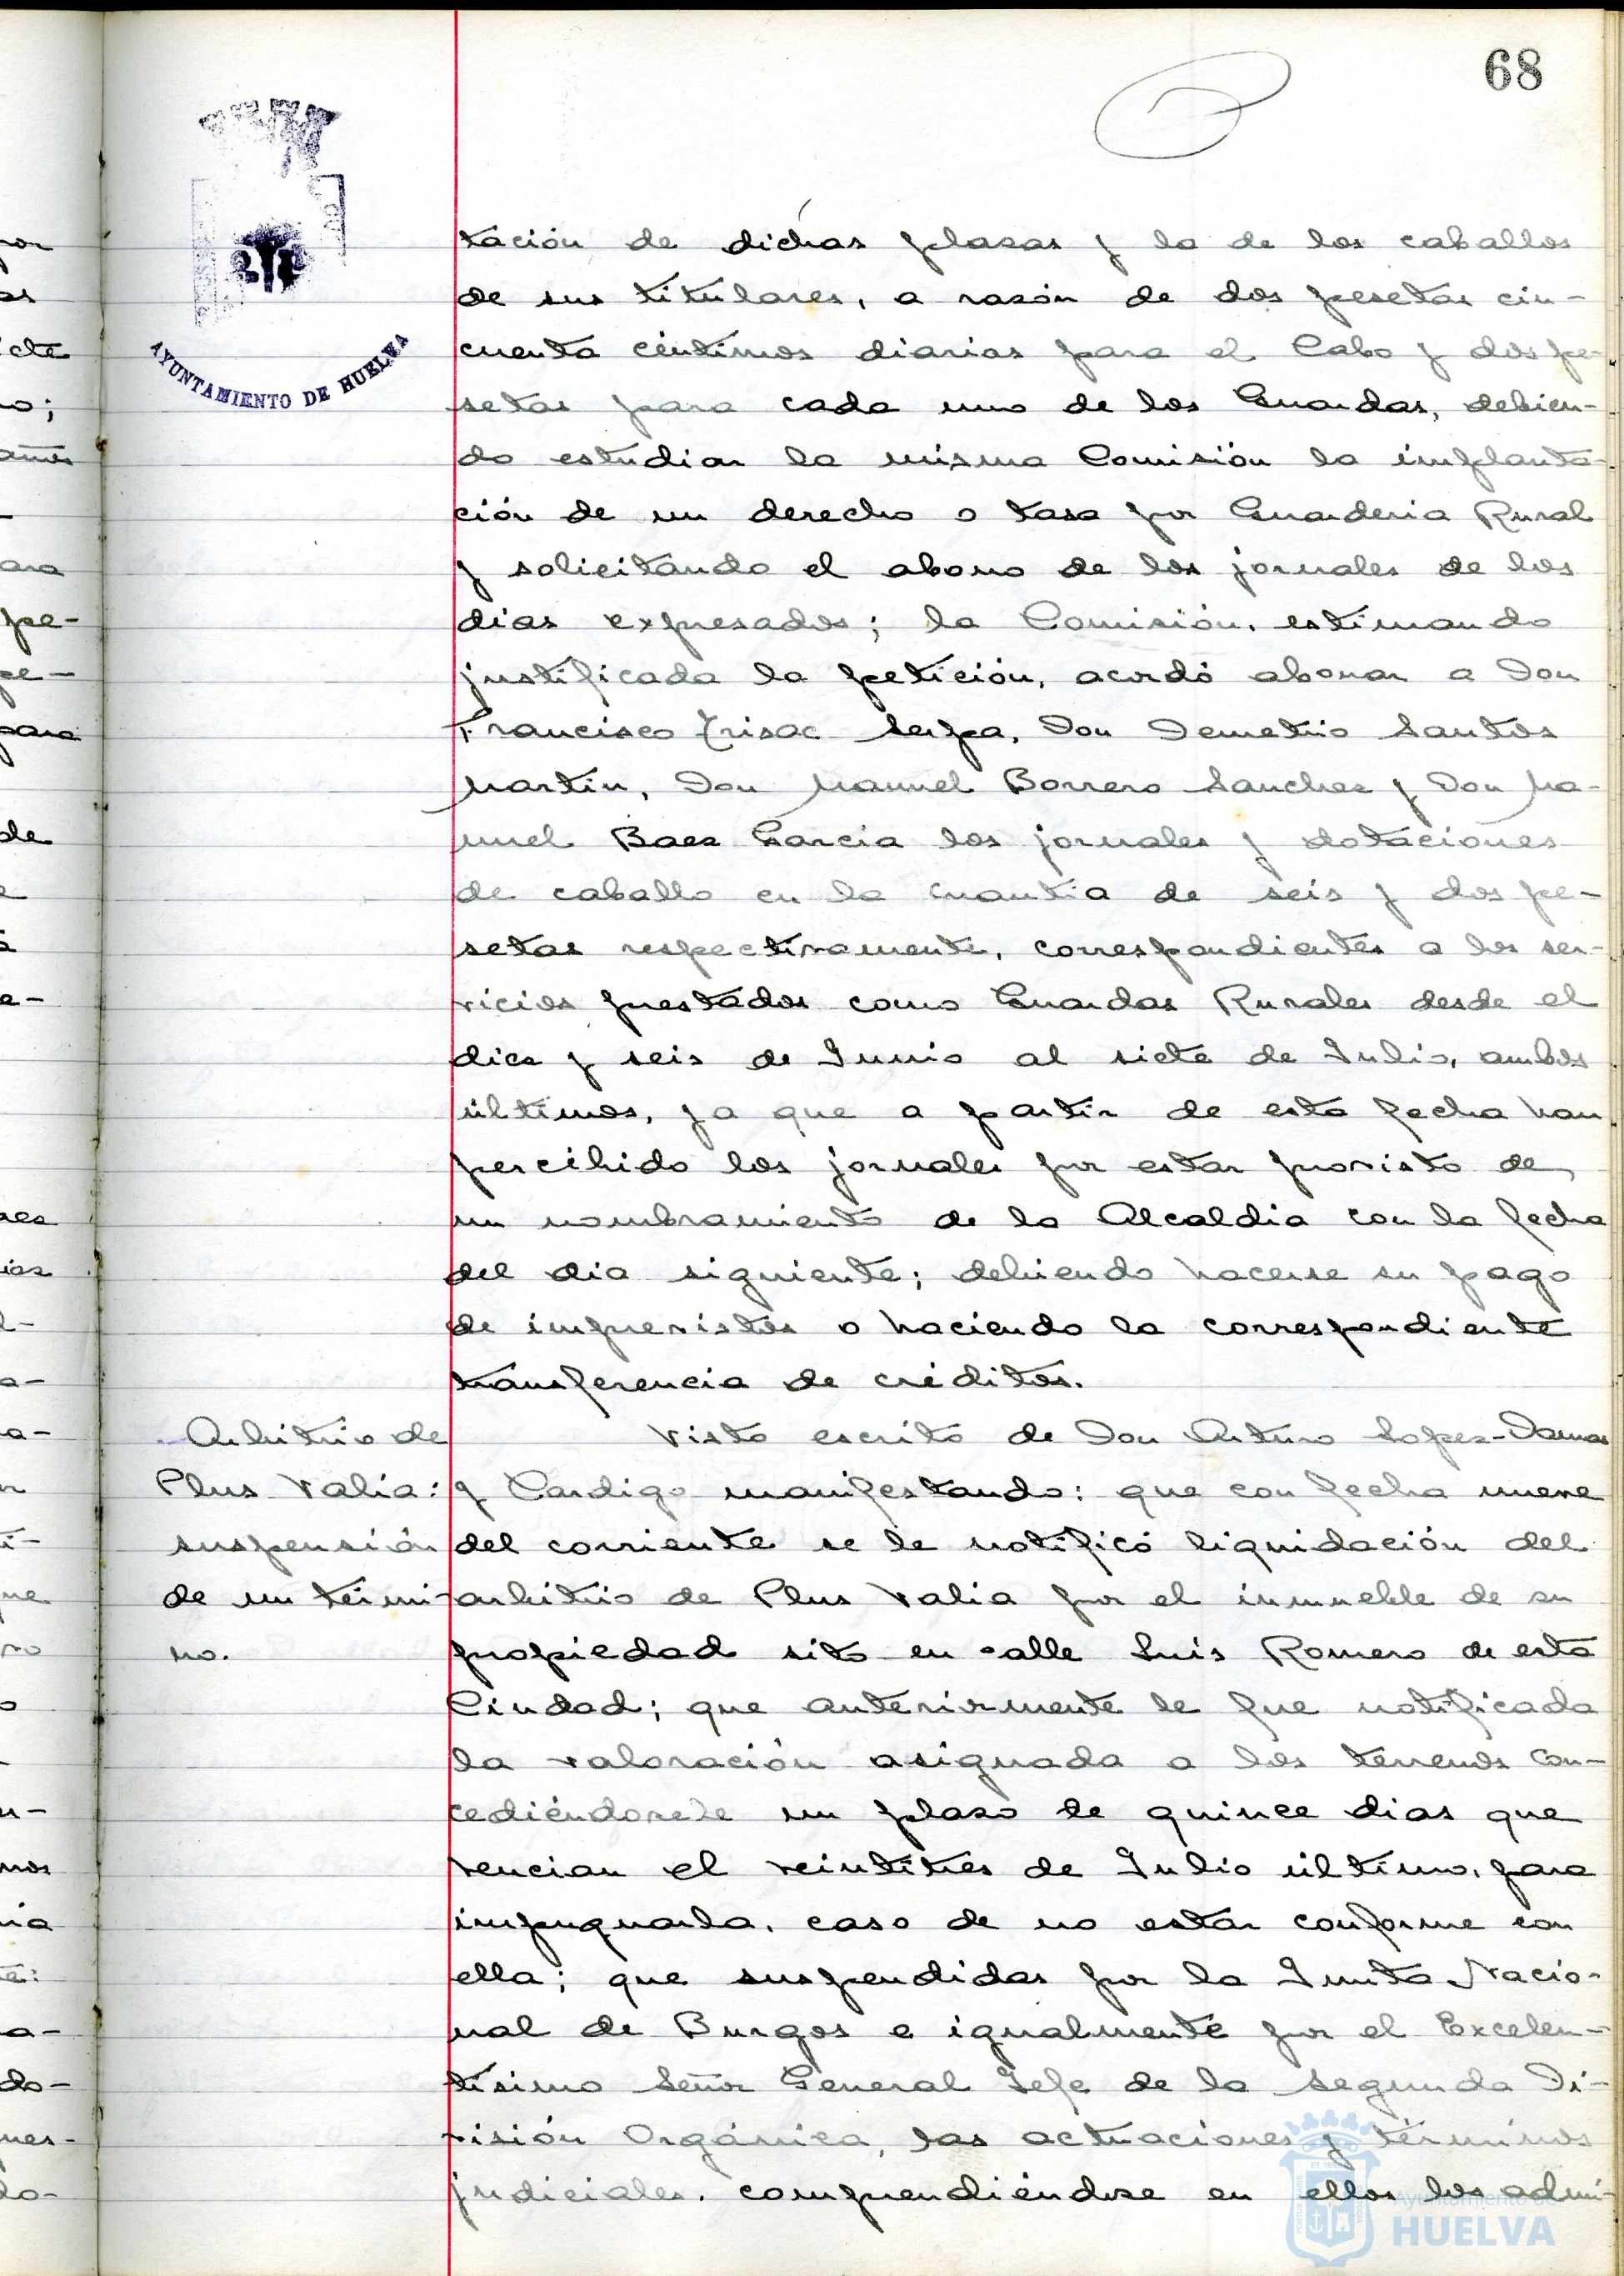 68
AYUNTAMIENTO DE HUELVA
tación de dichas plazas y la de los caballos
de sus titulares, a razón de dos pesetas cin-
cuenta céntimos diarios para el Cabo y dos pe-
setas para cada uno de los Guardas, debien-
do estudiar la misma Comisión la implanta-
ción de un derecho o tasa por Guardería Rural
y solicitando el abono de los jornales de los
dias expresados; la Comisión, estimando
justificada la petición, acordó abonar a Don
Francisco Serpa, Don Demetrio Santos
Martín, Don Manuel Borrero Sanchez y Don Ma-
nuel Baez Garcia los jornales y dotaciones
de caballo en la cuantia de seis y dos pe-
setas respectivamente, correspondientes a los ser-
vicios prestados como Guardas Rurales desde el
diez y seis de Junio al siete de Julio, ambos
últimos, ya que a partir de esta fecha han
percibido los jornales por estar provisto de
un nombramiento de la Alcaldia con la fecha
del dia siguiente; debiendo hacerse su pago
de imprevistos o haciendo la correspondiente
transferencia de créditos.
Arbitrio de
Plus Valia:
suspensión
de un térmi-
no.
Visto escrito de Don Arturo Lopez-Damas
y Cardigo manifestando: que con fecha nueve
del corriente se le notificó liquidación del
arbitrio de Plus Valia por el inmueble de su
propiedad sito en calle Luis Romero de esta
Ciudad; que anteriormente le fue notificada
la valoración asignada a los terrenos con-
cediéndosele un plazo de quince dias que
vencian el veintitres de Julio último, para
impugnarla, caso de no estar conforme con
ella; que suspendidas por la Junta Nacio-
nal de Burgos e igualmente por el Excelen-
tísimo Señor General Jefe de la Segunda Di-
visión Orgánica, las actuaciones y términos
judiciales, comprendiéndose en ellos los admi-
Ayuntamiento de
HUELVA